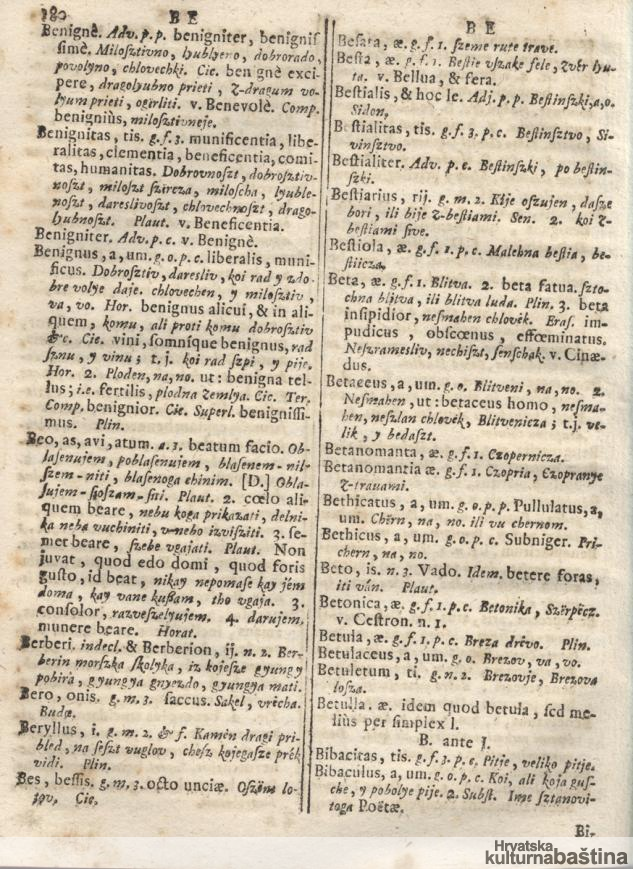 180
B E
Benignè. Adv. p. p. benigniter, benignis
simè. Milosztivno, lyublyero, dobrorado,
povolyno, chlovechki. Cic. benignè exci
pere, dragolyubno prieti, z-dragum vo-
lyum prieti, ogirliti. v. Benevolè. Comp.
benigniùs, milosztivneje.
Benignitas, tis. g. f. 3. munificentia, libe-
ralitas, clementia, beneficentia, comi-
tas, humanitas. Dobrovnoszt, dobrosztiv-
noszt, miloszt szircza, miloscha, lyuble-
noszt, dareslivoszt, chlovechnoszt, drago-
lyubnoszt. Plaut. v. Beneficentia.
Benigniter. Adv. p. c. v. Benignè.
Benignus, a, um. g. o. p. c. liberalis, muni-
ficus. Dobrosztiv, daresliv, koi rad y zdo-
bre volye daje. chlovechen, y milosztiv,
va, vo. Hor. benignus alicui, & in ali-
quem, komu, ali proti komu dobrosztiv
&c. Cic. vini, somnique benignus, rad
sznu, y vinu; t. j. koi rad szpi, y pije.
Hor. 2. Ploden, na, no. ut: benigna tel-
lus; i. e. fertilis, plodna zemlya. Cic. Ter.
Comp. benignior. Cic. Superl. benignissi-
mus. Plin.
Beo, as, avi, atum. a. 3. beatum facio. Ob-
lasenujem, poblasenujem, blasenem-nil-
szem-niti, blasenoga chinim. [D.] Obla-
sujem-sioszam-siti. Plaut. 2. cœlo ali-
quem beare, nebu koga prikazati, delni-
ka neba vuchiniti, v-nebo izvisziti. 3. se-
met beare, szebe vgajati. Plaut. Non
juvat, quod edo domi, quod foris
gusto, id beat, nikay nepomase kay jèm
doma, kay vane kußam, tho vgaja. 3.
consolor, razveszelyujem. 4. darujem,
munere beare. Horat.
Berberi. indecl. & Berberion, ij. n. 2. Ber-
berin morszka skolyka, iz kojesze gyungy
pobira, gyungya gnyezdo, gyungya mati.
Bero, onis. g. m. 3. saccus. Sakel, vrècha.
Budæ.
Beryllus, i. g. m. 2. & f. Kamèn dragi pri-
bled, na seszt vuglov, chesz kojegasze prék
vidi. Plin.
Bes, bessis. g. m. 3. octo unciæ. Oszèm lo-
tov. Cic,
B E
Besasa, æ. g. f. 1. szeme rute trave.
Bestia, æ. g. f. 1. Bestie vszake fele, Zvèr lyu-
ta. v. Bellua, & fera.
Bestialis, & hoc le. Adj. p. p. Bestinszki, a, o.
Sidon.
Bestialitas, tis. g. f. 3. p. c. Bestinsztvo, Si-
vinsztvo.
Bestialiter. Adv. p. c. Bestinszki, po bestin-
szki.
Bestiarius, rij. g. m. 2. Kïje oszujen, dasze
bori, ili bije z-bestiami. Sen. 2. koi z-
bestiami sive.
Bestiola, æ. g. f. 1. p. c. Malehna bestia, be-
stiicza,
Beta, æ. g. f. 1. Blitva. 2. beta fatua. szto-
chna blitva, ili blitva luda. Plin. 3. beta
insipidior, nesmahen chlovèk. Eras. im-
pudicus, obscœnus, effœminatus.
Neszramesliv, nechiszt, senschak. v. Cinæ-
dus.
Betaceus, a, um. g. o. Blitveni, na, no. 2.
Nesmahen, ut: betaceus homo, nesma-
hen, neszlan chlovèk, Blitvenicza; t. j. ve-
lik, y bedaszt.
Betanomanta, æ. g. f. 1. Czopernicza.
Betanomantia æ. g. f. 1. Czopria, Czopranye
z-travami.
Bethicatus, a, um. g. o. p. p. Pullulatus, a,
um. Chìrn, na, no. ili vu chernom.
Bethicus, a, um. g. o. p. c. Subniger. Pri-
chern, na, no.
Beto, is. n. 3. Vado. Idem. betere foras,
iti vàn. Plaut.
Betonica, æ. g. f. 1. p. c. Betonika, Szèrpècz.
v. Cestron. n. 1.
Betula, æ. g. f. 1. p. c. Breza drèvo. Plin.
Betulaceus, a, um. g. o. Brezov, va, vo.
Betuletum, ti. g. n. 2. Brezovje, Brezova
losza.
Betulla. æ. idem quod betula, sed me-
liùs per simplex l.
B. ante I.
Bibacitas, tis. g. f. 3. p. c. Pitje, veliko pitje.
Bibaculus, a, um. g. o. p. c. Koi, ali koja gus-
che, y poholye pije. 2. Subst. Ime sztanovi-
toga Poëtæ.
Bi-
Hrvatska
kulturnabaština